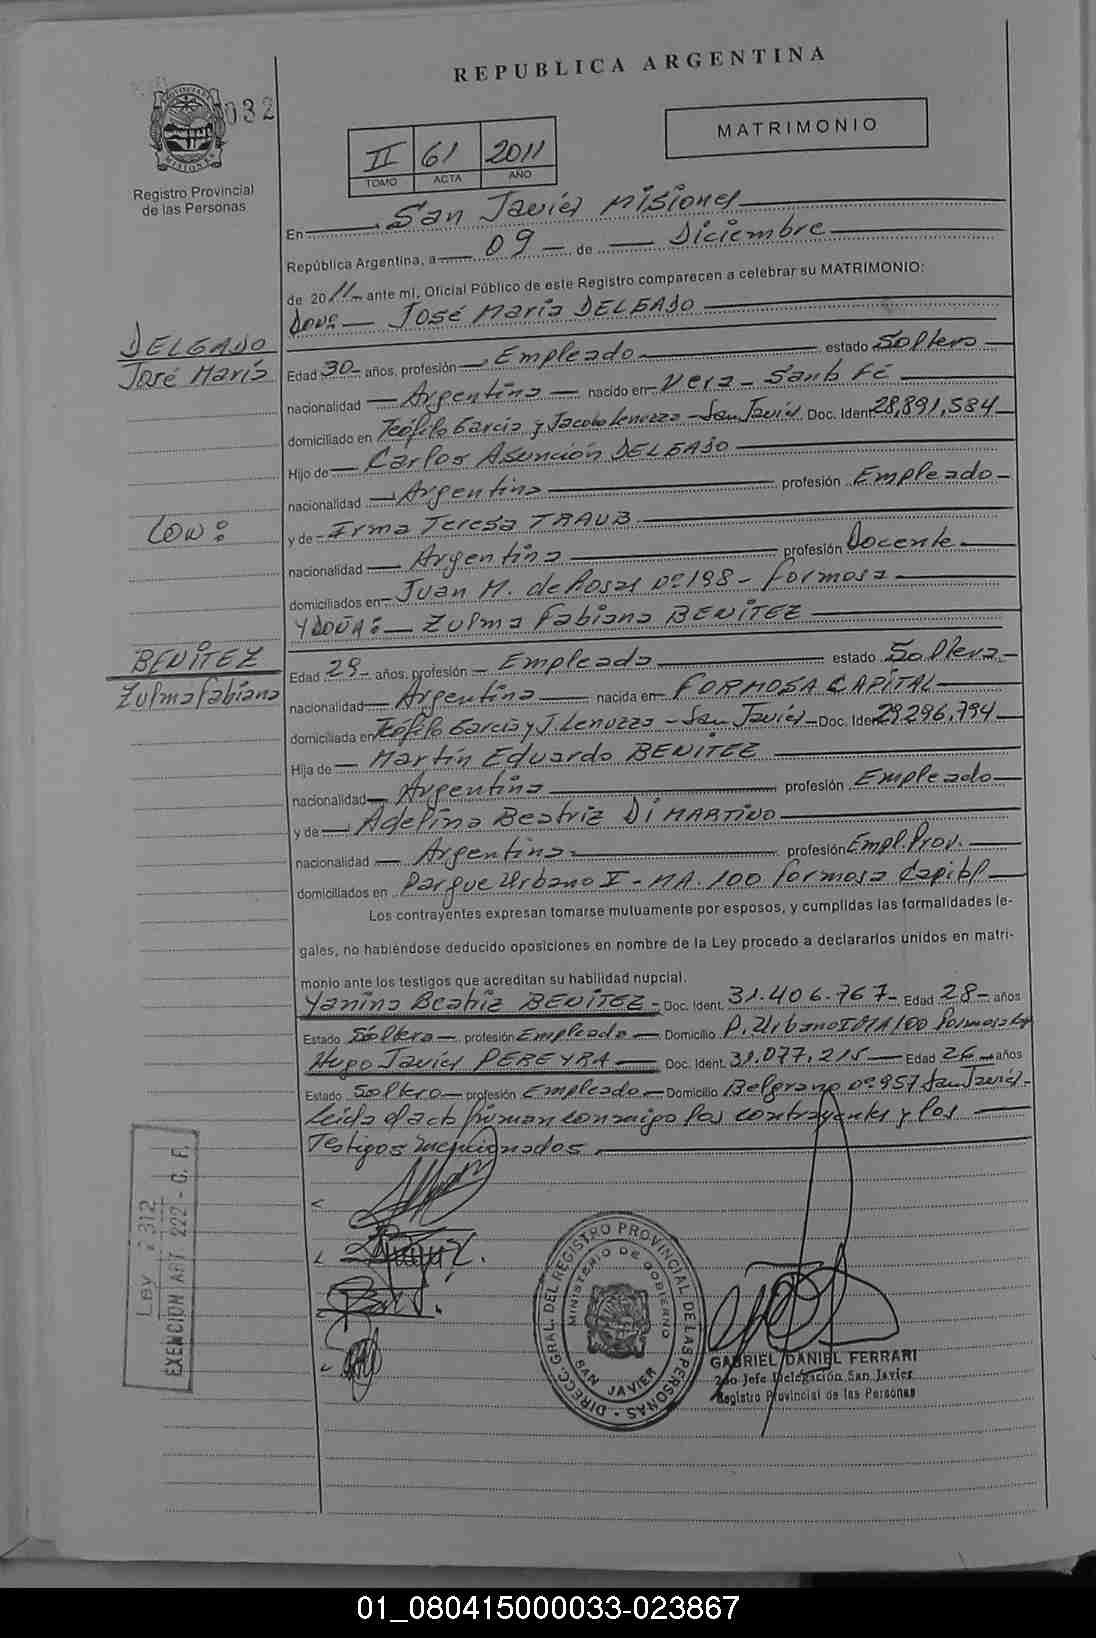 REPUBLICA ARGENTINA
032
MATRIMONIO
II 61 2011
TOMO ACTA AÑO
PROVINCIA MISIONES
Registro Provincial
de las Personas
En San Javier Misiones
República Argentina, a 09 de Diciembre
de 2011 ante mí, Oficial Público de este Registro comparecen a celebrar su MATRIMONIO:
DON: José María DELGADO
DELGADO
José María
Edad 30 años, profesión Empleado estado Soltero
nacionalidad Argentina nacido en Vera - Santa Fé
domiciliado en Teófilo García y Jacobo Lenuzza - San Javier Doc. Ident 28,891,584
Hijo de Carlos Asunción DELGADO
nacionalidad Argentina profesión Empleado
CON:
y de Irma Teresa TRAUB
nacionalidad Argentina profesión Docente
domiciliados en Juan M. de Rosas nº 198 - Formosa
Y DOÑA: Zulma Fabiana BENITEZ
BENITEZ
Zulma Fabiana
Edad 29 años, profesión Empleada estado Soltera
nacionalidad Argentina nacida en FORMOSA CAPITAL
domiciliada en Teófilo García y J. Lenuzza - San Javier Doc. Iden 29296,794
Hija de Martín Eduardo BENITEZ
nacionalidad Argentina profesión Empleado
y de Adelina Beatriz Di MARTINO
nacionalidad Argentina profesión Empl. Prov.
domiciliados en Parque Urbano II - MA. 100 Formosa Capital
Los contrayentes expresan tomarse mutuamente por esposos, y cumplidas las formalidades le-
gales, no habiéndose deducido oposiciones en nombre de la Ley procedo a declararlos unidos en matri-
monio ante los testigos que acreditan su habilidad nupcial.
Yanina Beatriz BENITEZ Doc. Ident. 31.406.767 Edad 28 años
Estado Soltera profesión Empleada Domicilio P. Urbano II MA 100 Formosa
Hugo Javier PEREYRA Doc. Ident. 32.077.215 Edad 26 años
Estado Soltero profesión Empleado Domicilio Belgrano nº 957 San Javier
Leída el acta firman conmigo los contrayentes y los
Testigos mencionados
Ley 2312
EXENCION ART 222 - C. F.
DIRECC. GRAL. DEL REGISTRO PROVINCIAL DE LAS PERSONAS
MINISTERIO DE GOBIERNO
SAN JAVIER
GABRIEL DANIEL FERRARI
2do Jefe Delegación San Javier
Registro Provincial de las Personas
01_080415000033-023867